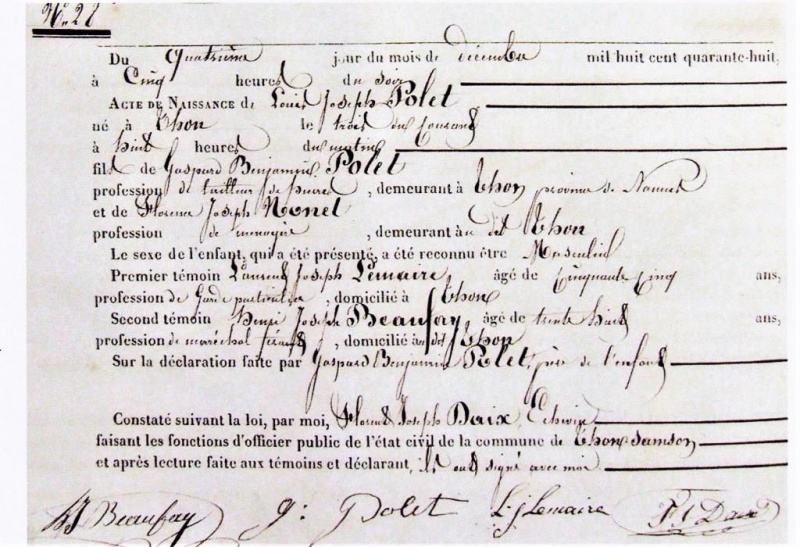 No. 28
Du quatrième jour du mois de décembre mil huit cent quarante-huit,
à Cinq heures du soir
ACTE DE NAISSANCE de Louis Joseph Polet
né à Thon le trois du Courant
à huit heures du matin
fils de Gaspard Benjamin Polet
profession de tailleur de pierres, demeurant à Thon province de Namur
et de Florence Joseph Nonet
profession de ménagère, demeurant au dit Thon
Le sexe de l'enfant, qui a été présenté, a été reconnu être Masculin
Premier témoin Laurent Joseph Lemaire, âgé de Cinquante Cinq ans,
profession de Garde particulier, domicilié à Thon
Second témoin Henri Joseph Beaufay, âgé de trente huit ans,
profession de maréchal férant, domicilié au dit Thon
Sur la déclaration faite par Gaspard Benjamin Polet, père de l'enfant
Constaté suivant la loi, par moi, Florent Joseph Daix, Echevin
faisant les fonctions d'officier public de l'état civil de la commune de Thon Samson
et après lecture faite aux témoins et déclarant, ils ont signé avec moi
HJ Beaufay g: Polet L. j Lemaire F J Daix